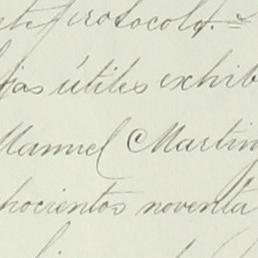 protocolo.=
jas útiles exhib
Manuel Martin
hocientos noventa